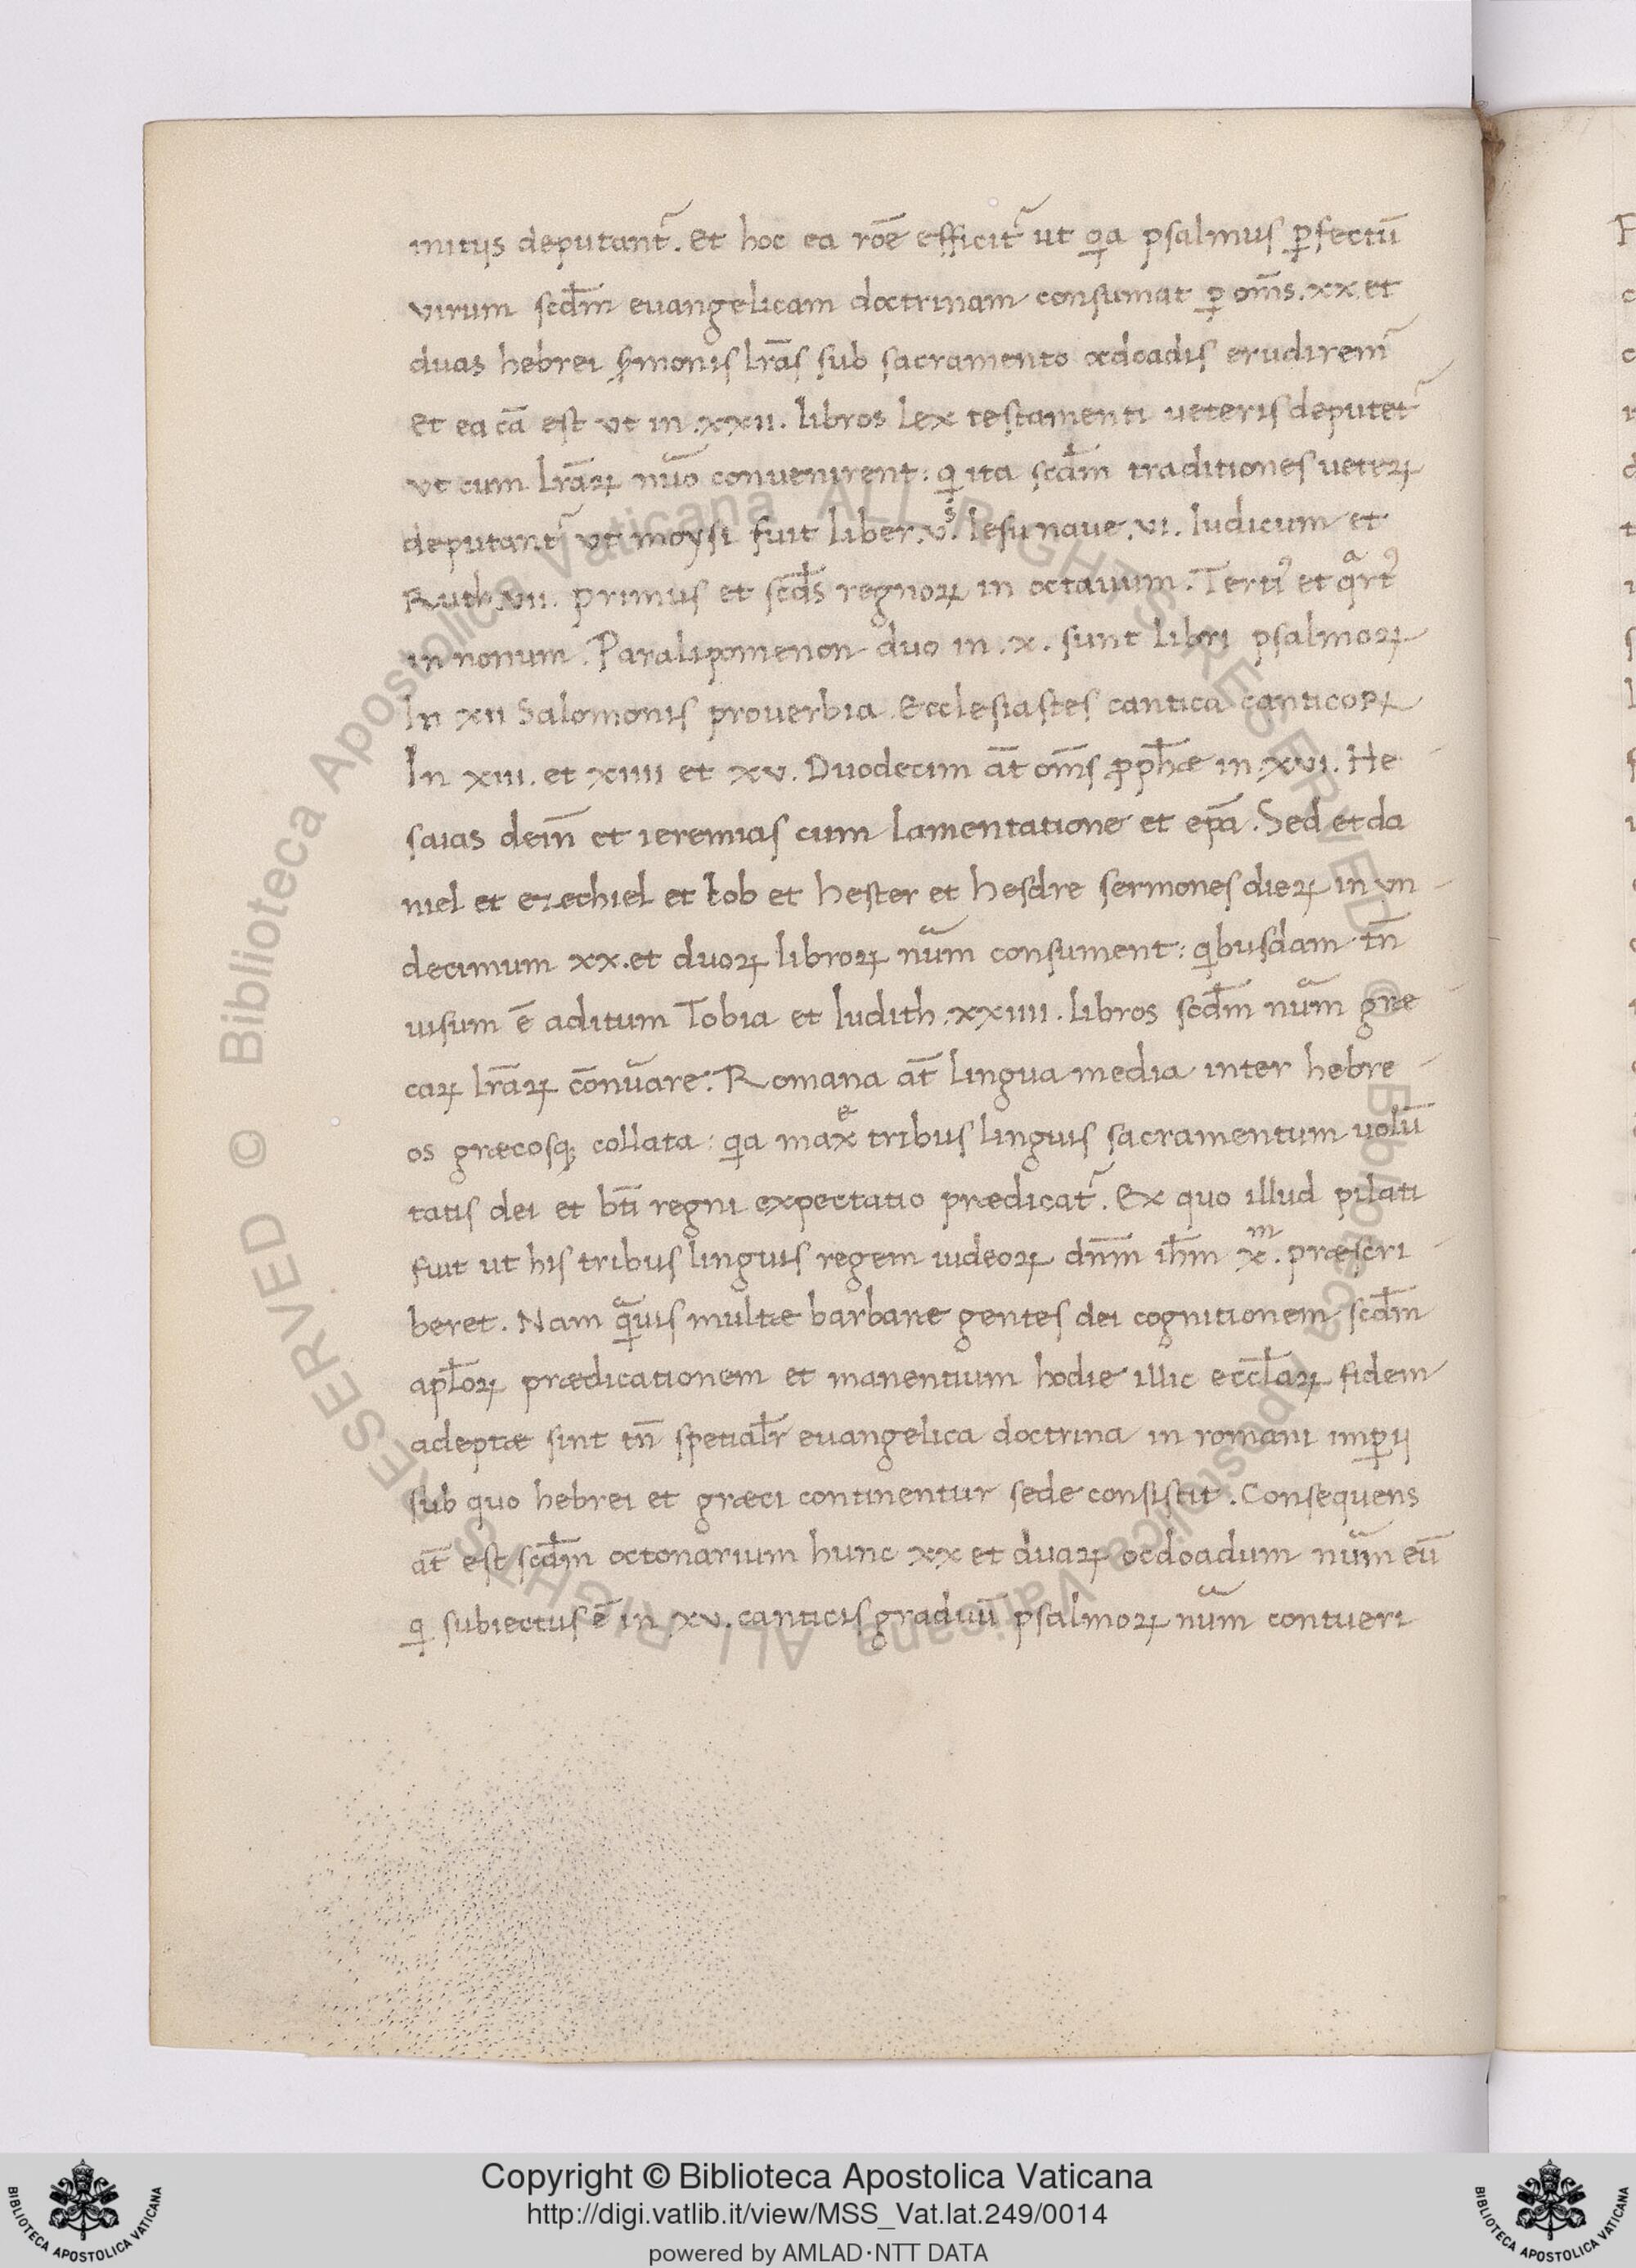 initijs deputant᷑. Et hoc ea rōe efficit᷑ ut qia psalmus ꝑfectū
virum scd̄m euangelicam doctrinam consumat ꝑ om̄s. xx. et
duas hebrei s̄monis lr̄as sub sacramento ocdoadis erudirem᷑
Et ea cā est vt in .xxii. libros lex testamenti veteris deputet᷑
vt cum lr̄aꝝ nūo convenirent: qi ita scd̄m traditiones veteꝝ
deputant᷑ vt moysi fuit liber .vˢ. Iesu naue .vi. Iudicum et
Ruth .vii. primus et scd̄s regnoꝝ in octauum. Tertiꝰ et qᵃrtꝰ
in nonum. Paralipomenon duo in .x. sunt libri psalmoꝝ
In xii Salomonis prouerbia. Ecclesiastes cantica canticoꝝ
In xiii. et xiiii et xv. Duodecim āt om̄s ꝓph̄æ in .xvi. He
saias dein̄ et ieremias cum lamentatione et ep̄a. Sed et da
niel et ezechiel et Iob et hester et hesdre sermones dieꝝ in vn
decimum xx. et duoꝝ libroꝝ nūm consument: qibusdam tn̄
uisum ē aditum Tobia et Iudith .xxiiii. libros scd̄m nūm græ
caꝝ lr̄aꝝ cōnūare. Romana āt lingua media inter hebre
os græcosq; collata: qia maxᵉ tribus linguis sacramentum volū
tatis dei et bt̄i regni expectatio prædicat᷑. Ex quo illud pilati
fuit ut his tribus linguis regem iudeoꝝ dn̄m ih̄m xᵐ. præscri
beret. Nam qᵃuis multæ barbaræ gentes dei cognitionem scd̄m
apl̄oꝝ prædicationem et manentium hodie illic eccl̄aꝝ fidem
adeptæ sint tn̄ spetial̄r euangelica doctrina in romani imꝑij
sub quo hebrei et græci continentur sede consistit. Consequens
āt est scd̄m octonarium hunc xx et duaꝝ ocdoadum nūm eū
qi subiectus ē in xv. canticis graduū psalmoꝝ nūm contueri
Biblioteca Apostolica Vaticana ALL RIGHTS RESERVED © Biblioteca Apostolica Vaticana ALL RIGHTS RESERVED ©
Copyright © Biblioteca Apostolica Vaticana
http://digi.vatlib.it/view/MSS_Vat.lat.249/0014
powered by AMLAD·NTT DATA
BIBLIOTECA APOSTOLICA VATICANA
BIBLIOTECA APOSTOLICA VATICANA